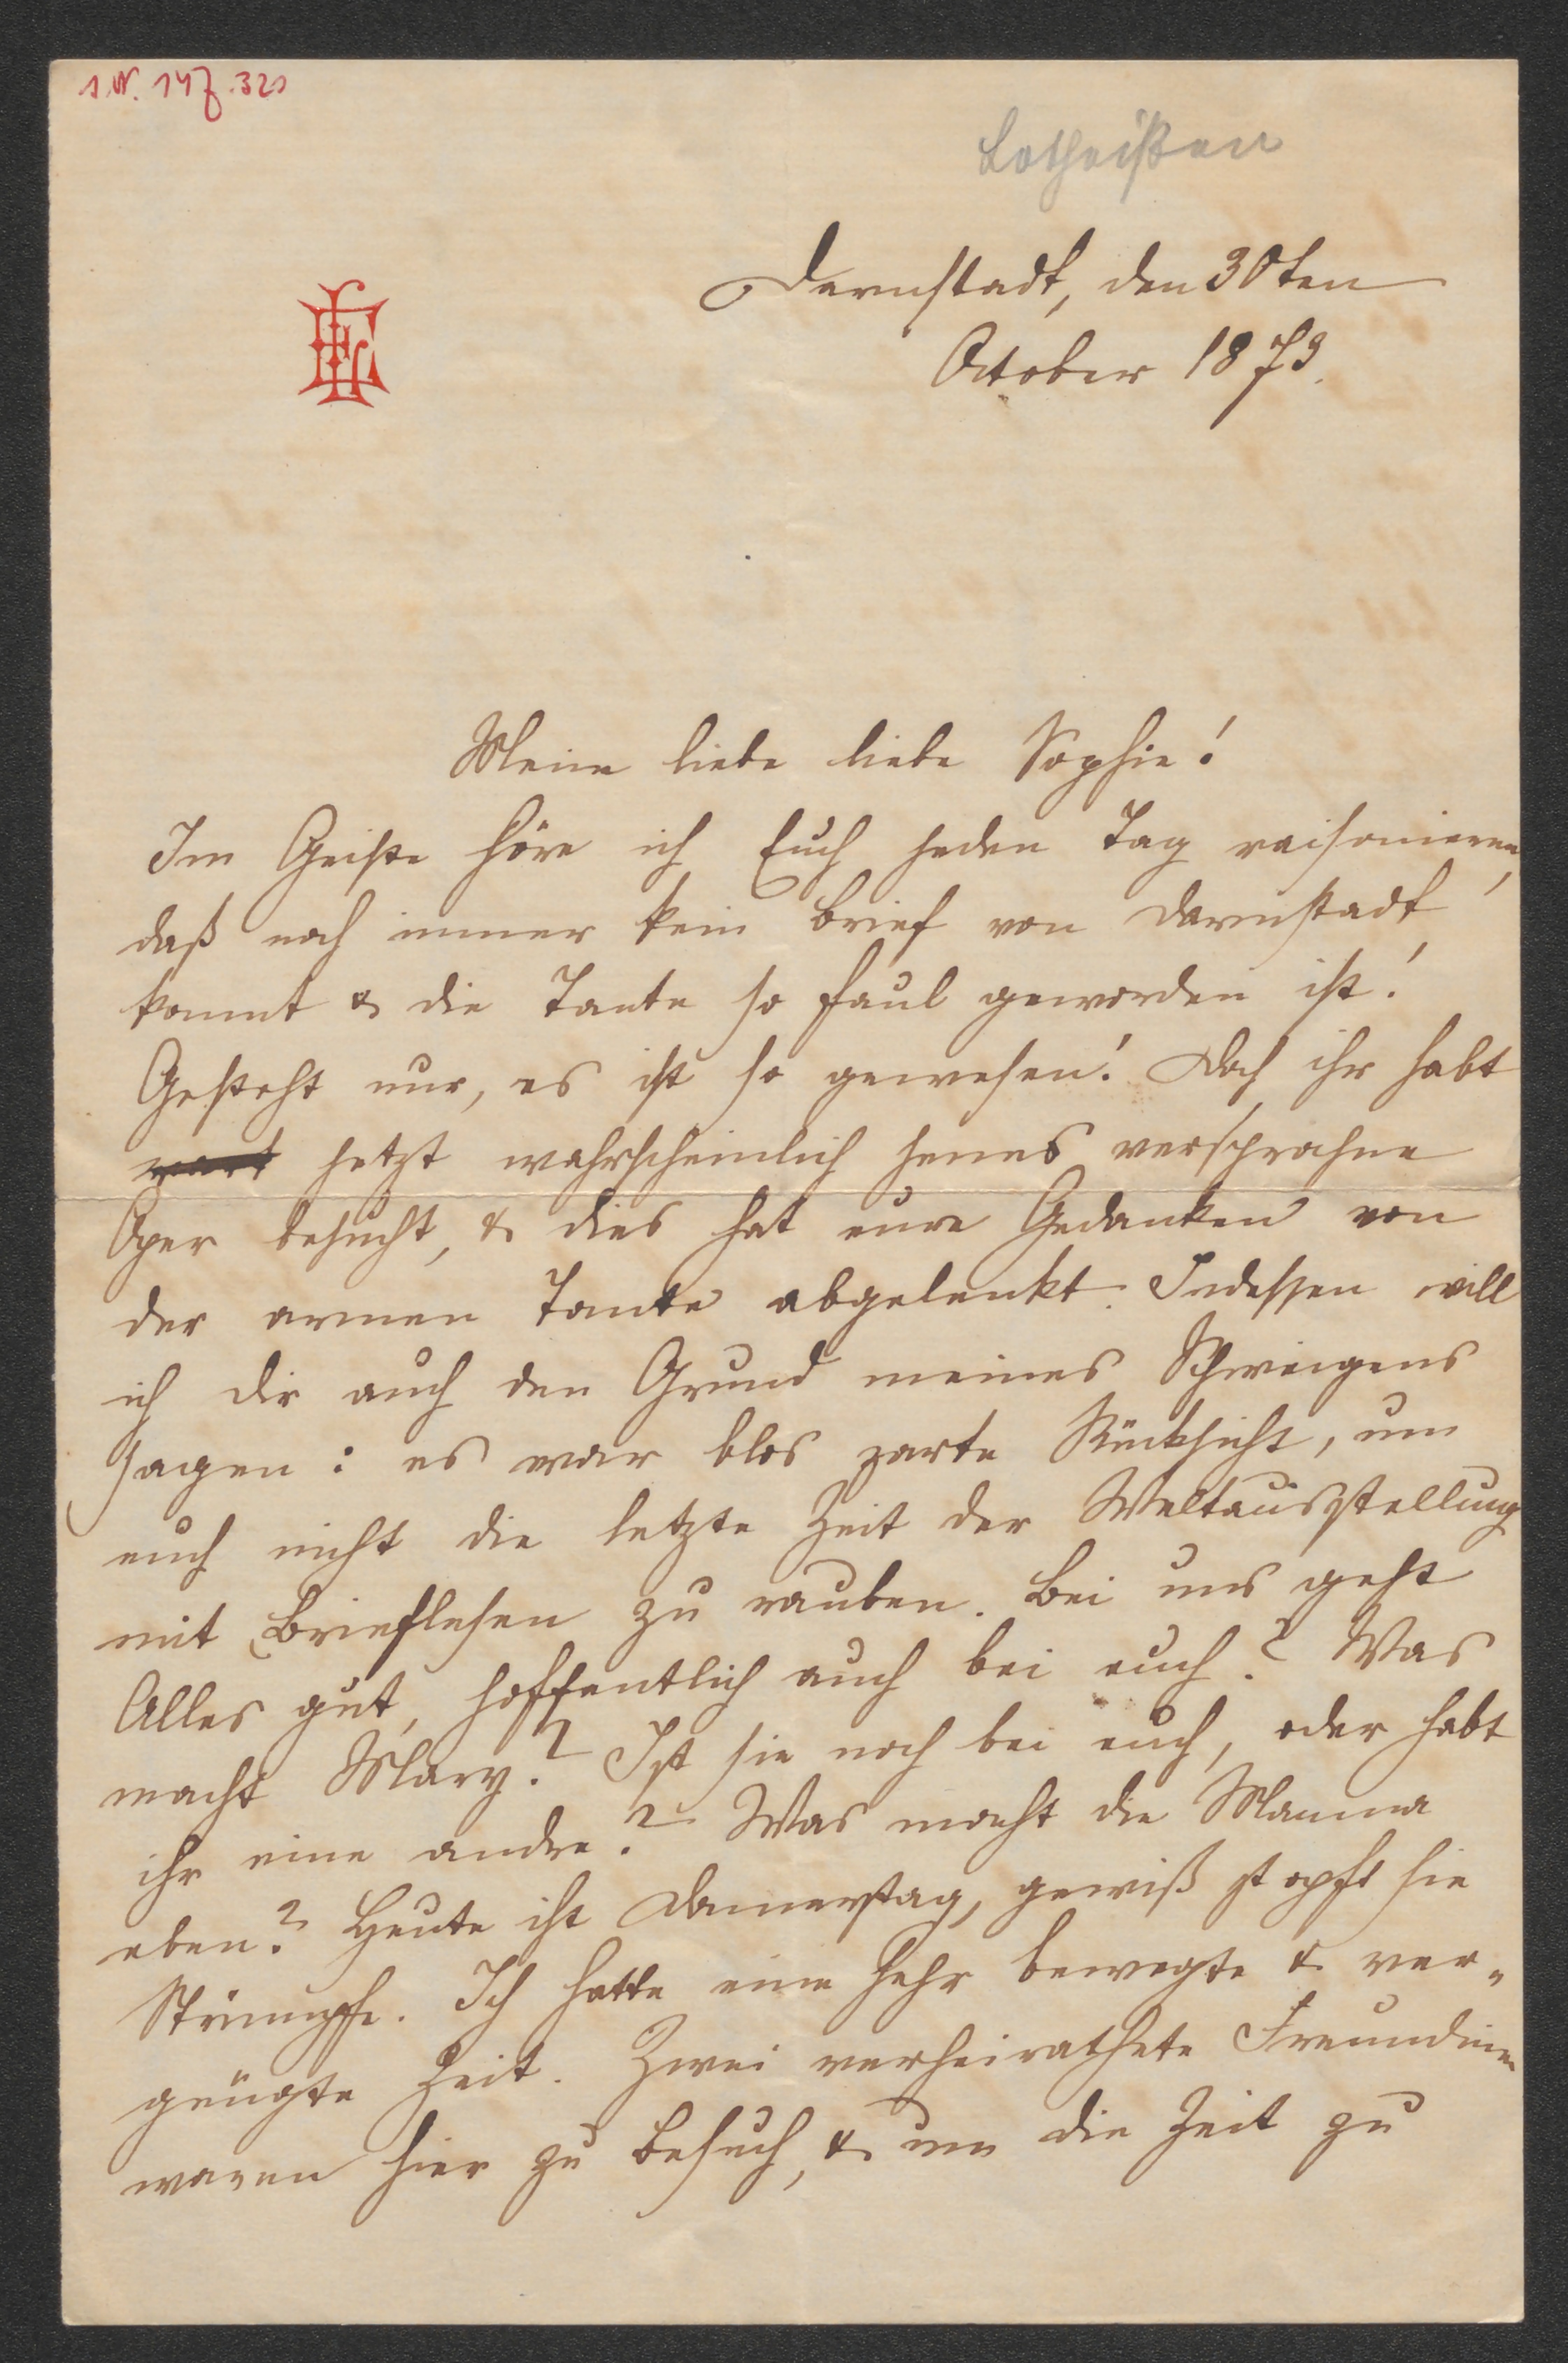 I.N. 147.321
Lotheißen
Darmstadt, den 30ten
October 1873.
Meine liebe liebe Sophie!
Im Geiste höre ich Euch jeden Tag raisonieren,
daß noch immer kein Brief von Darmstadt
kommt & die Tante so faul geworden ist!
Gesteht nur, es ist so gewesen! Doch ihr habt
jetzt wahrscheinlich jenes versprochne
Oper besucht, & dies hat eure Gedanken von
der armen Tante abgelenkt. Indessen will
ich dir auch den Grund meines Schweigens
sagen: es war blos zarte Rücksicht, um
euch nicht die letzte Zeit der Weltausstellung
mit Brieflesen zu rauben. Bei uns geht
Alles gut, hoffentlich auch bei euch? Was
macht Mary? Ist sie noch bei euch, oder habt
ihr eine andre? Was macht die Mamma
eben? Heute ist Donnerstag, gewiß stopft sie
Strümpfe. Ich hatte eine sehr bewegte & ver-
gnügte Zeit. Zwei verheirathete Freundinen
waren hier zu Besuch, & um die Zeit zu